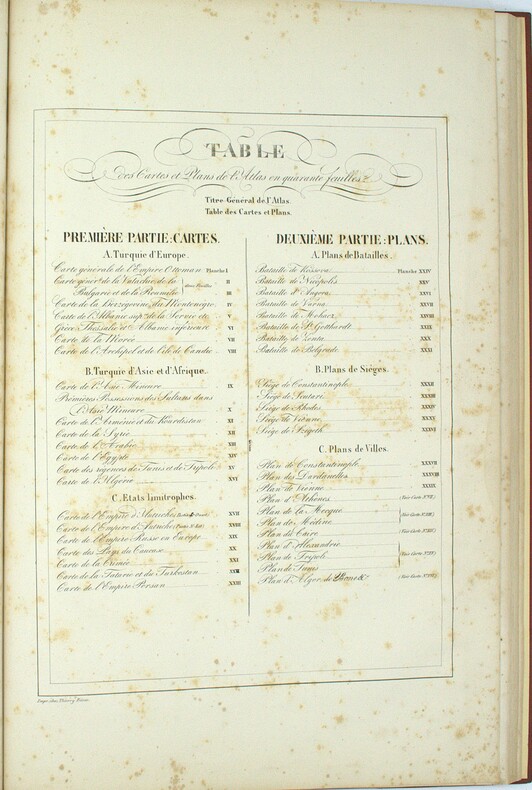 TABLE
des Cartes et Plans de l'Atlas en quarante feuilles.
Titre Général de l'Atlas.
Table des Cartes et Plans.
PREMIÈRE PARTIE: CARTES.
A. Turquie d'Europe.
Carte générale de l'Empire Ottoman Planche I
Carte génér. de la Valachie, de la II
Bulgarie et de la Roumélie III
Carte de la Herzegovine, du Montenegro IV
Carte de l'Albanie sup. de la Servie etc V
Grèce, Thessalie et Albanie inférieure VI
Carte de la Morée VII
Carte de l'Archipel et de l'île de Candie VIII
B. Turquie d'Asie et d'Afrique.
Carte de l'Asie Mineure IX
Premières Possessions des Sultans dans
l'Asie Mineure X
Carte de l'Arménie et du Kourdestan XI
Carte de la Syrie XII
Carte de l'Arabie XIII
Carte de l'Egypte XIV
Carte des régences de Tunis et de Tripoli XV
Carte de l'Algérie XVI
C. Etats limitrophes.
Carte de l'Empire d'Autriche XVII
Carte de l'Empire d'Autriche XVIII
Carte de l'Empire Russe en Europe XIX
Carte des Pays du Caucase XX
Carte de la Crimée XXI
Carte de la Tatarie et du Turkestan XXII
Carte de l'Empire Persan XXIII
DEUXIÈME PARTIE: PLANS.
A. Plans de Batailles.
Bataille de Kossova Planche XXIV
Bataille de Nicopolis XXV
Bataille d'Angora XXVI
Bataille de Varna XXVII
Bataille de Mohacz XXVIII
Bataille de St. Gotthardt XXIX
Bataille de Zenta XXX
Bataille de Belgrade XXXI
B. Plans de Sièges.
Siège de Constantinople XXXII
Siège de Scutari XXXIII
Siège de Rhodes XXXIV
Siège de Vienne XXXV
Siège de Szigeth XXXVI
C. Plans de Villes.
Plan de Constantinople XXXVII
Plan des Dardanelles XXXVIII
Plan de Vienne XXXIX
Plan d'Athènes (Voir Carte N° VI)
Plan de La Mecque
Plan de Médine (Voir Carte N° XIII)
Plan du Caire (Voir Carte N° XIV)
Plan d'Alexandrie
Plan de Tripoli (Voir Carte N° XV)
Plan de Tunis
Plan d'Alger (Voir Carte N° XVI)